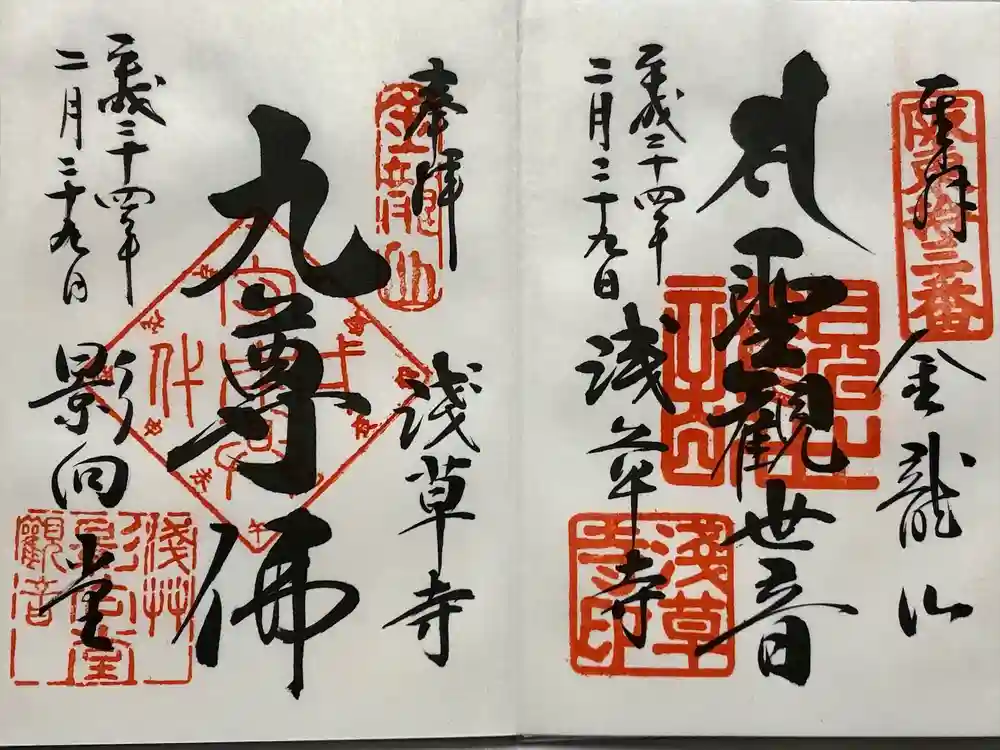 奉拝
坂東拾三番
金龍山
聖観世音
平成二十四年
二月二十九日
浅草寺
淺草
寺印
奉拝
金龍山
浅草寺
九尊佛
平成二十四年
二月二十九日
影向堂
淺艸
影向堂
觀音